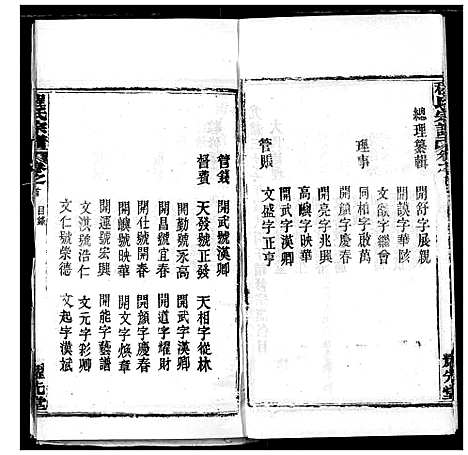 程氏宗譜
總理纂輯
開舒字展親
開談字華陔
文欲字繩會
理事
文相字啟萬
開顏字慶春
開亮字兆興
高嶼字映華
管賬
開武字漢卿
文盛字正亨
程氏宗譜
卷之首
目錄
管錢
開武號漢卿
督費
天發號正發
天相字從林
開勤號永高
開武字漢卿
開昌號宜春
開道字耀財
開仕號開春
開顏字慶春
開嶼號映華
開文字煥章
開運號宏興
開能字藝譜
文淇號浩仁
文元字彩卿
文仁號榮德
文起字漢斌